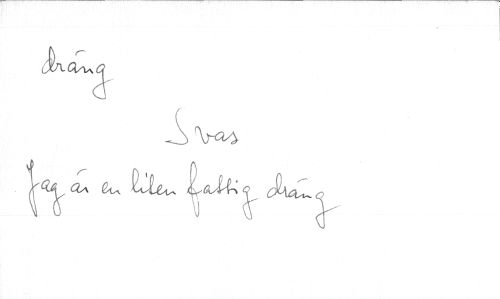 dräng
Svas
Jag är en liten fattig dräng